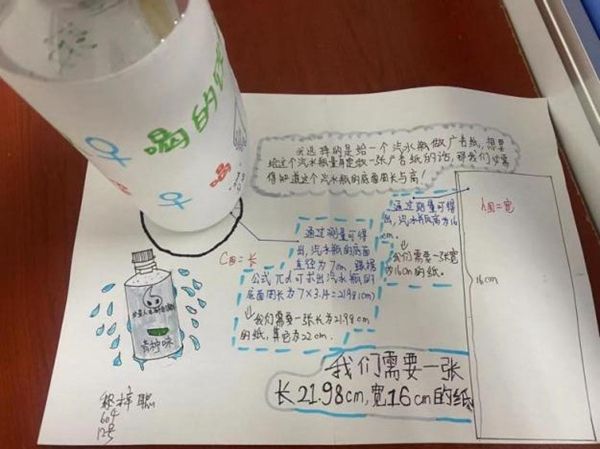 喝的
我选择的是给一个汽水瓶做广告纸,想要
给这个汽水瓶量身定做一张广告纸的话,那我们必需
得知道这个汽水瓶的底面周长与高!
通过测量可得
出,汽水瓶高为16
cm.
我们需要一张宽
为16cm的纸.
h圆=宽
16cm
C圆=长
通过测量可得
出,汽水瓶的底面
直径为7cm,根据
公式πd可求出汽水瓶的
底面周长为7×3.14=21.98(cm)
我们需要一张长为21.98cm
的纸,
为22cm.
青柠味
我们需要一张
长21.98cm,宽16cm的纸
604
12号